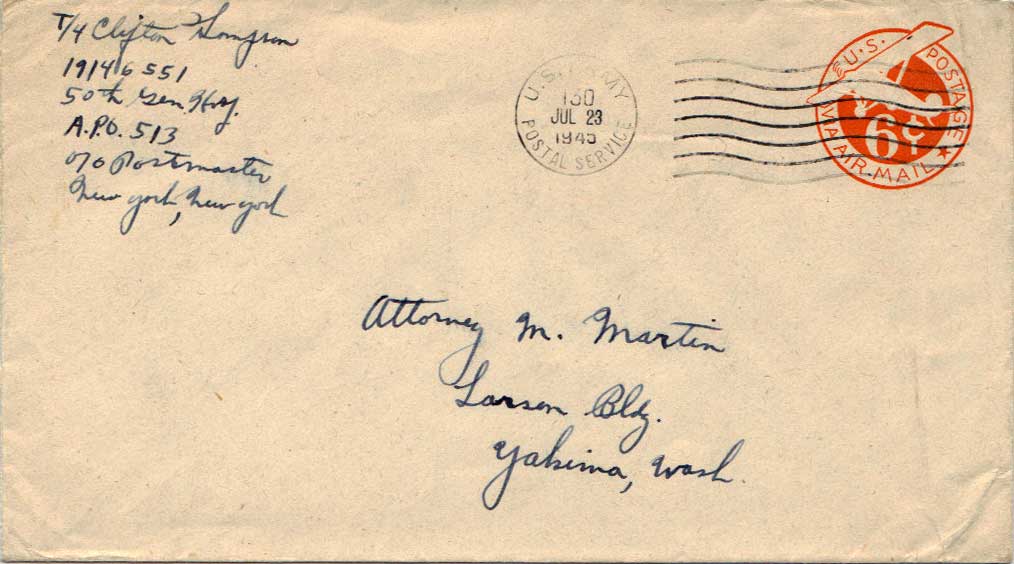 T/4 Clifton
19146551
50th Gen. Hosp.
A.P.O. 513
c/o Postmaster
New York, New York
U.S. ARMY
130
JUL 23
1945
POSTAL SERVICE
U.S. POSTAGE
6¢
VIA AIR MAIL
Attorney M. Martin
Larson Bldg.
Yakima, Wash.